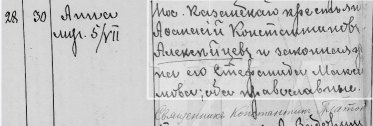 28 30 Анна
муч. 5/VII
Пос. Казанскаго крестьян.
Афанасій Константиновъ
Алексѣйцевъ и законная же-
на его Стефанида Макси-
мова; оба православные.
Священникъ Константинъ Платон